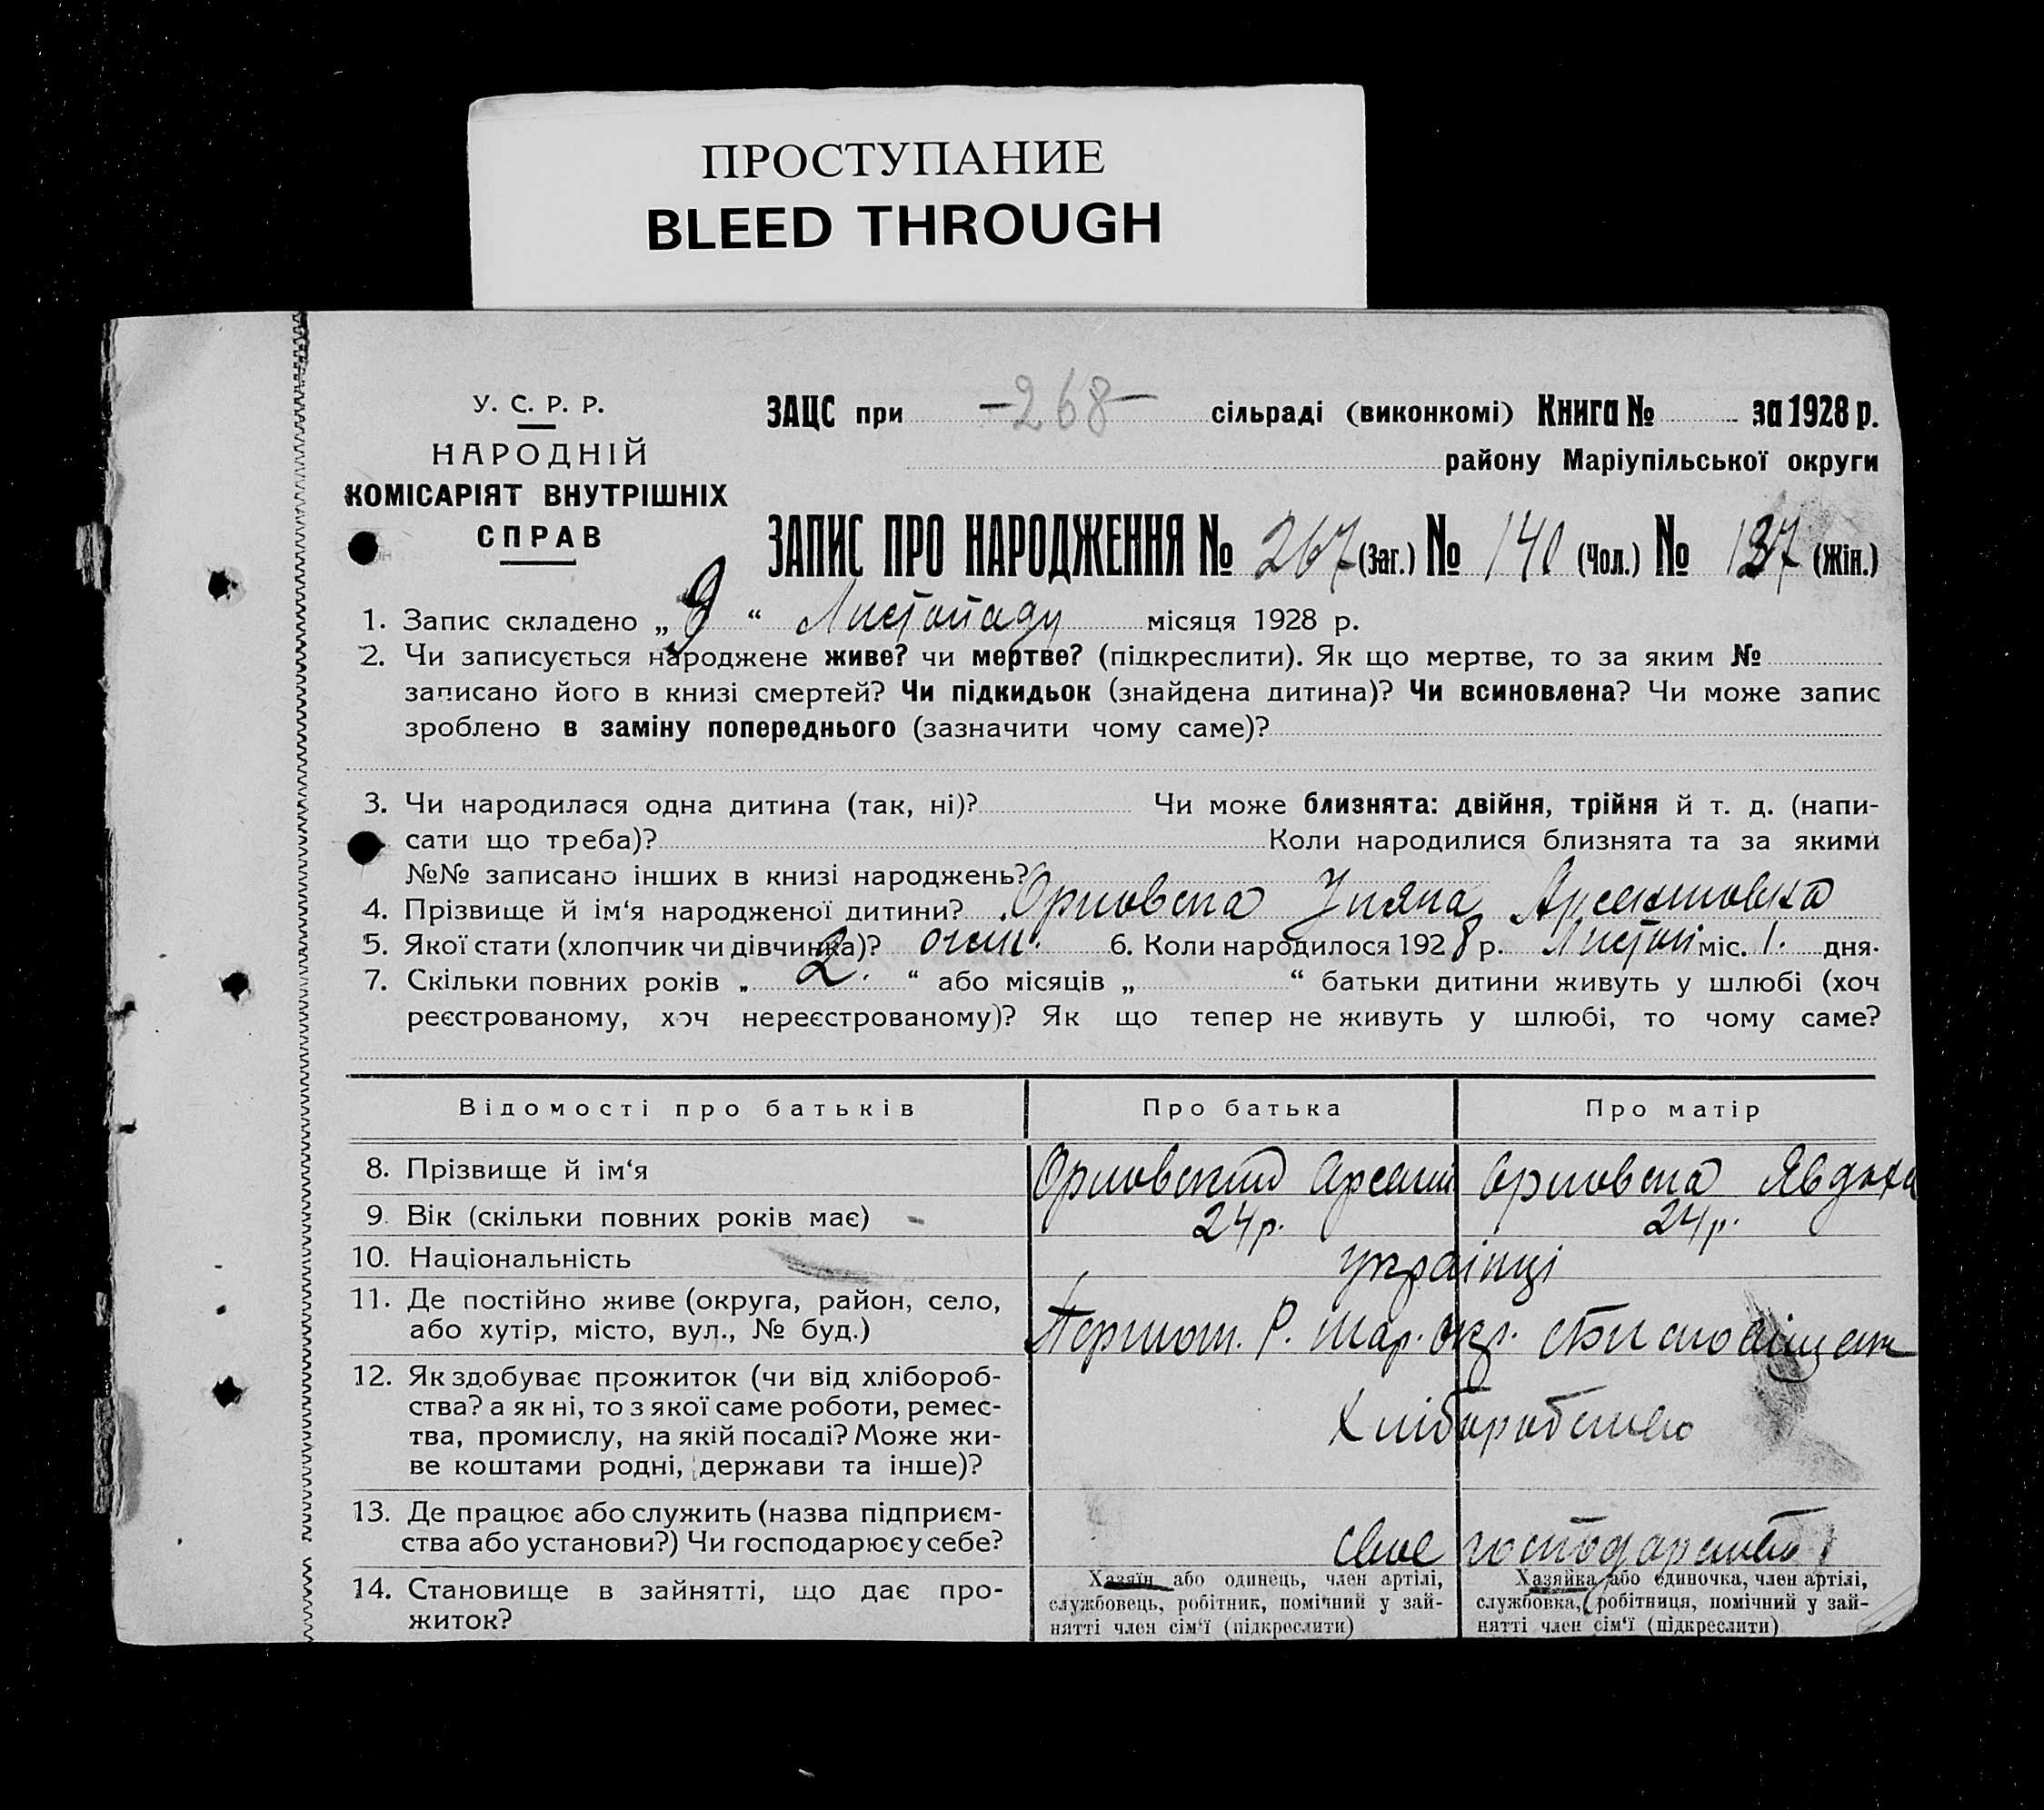 ПРОСТУПАНИЕ
BLEED THROUGH
У. С. Р. Р.
НАРОДНІЙ
КОМІСАРІЯТ ВНУТРІШНІХ
СПРАВ
ЗАЦС при -268- сільраді (виконкомі) Книга № за 1928 р.
району Маріупільської округи
ЗАПИС ПРО НАРОДЖЕННЯ № 267 (Заг.) № 140 (Чол.) № 127 (Жін.)
1. Запис складено „ 9 “ Листопаду місяця 1928 р.
2. Чи записується народжене живе? чи мертве? (підкреслити). Як що мертве, то за яким №
записано його в книзі смертей? Чи підкидьок (знайдена дитина)? Чи всиновлена? Чи може запис
зроблено в заміну попереднього (зазначити чому саме)?
3. Чи народилася одна дитина (так, ні)? Чи може близнята: двійня, трійня й т. д. (напи-
сати що треба)? Коли народилися близнята та за якими
№№ записано інших в книзі народжень?
4. Прізвище й ім‘я народженої дитини? Орловска Уляна
5. Якої стати (хлопчик чи дівчинка)? 6. Коли народилося 1928 р. Листоп міс. 1. дня.
7. Скільки повних років „ 2. “ або місяців „ “ батьки дитини живуть у шлюбі (хоч
реєстрованому, хоч нереєстрованому)? Як що тепер не живуть у шлюбі, то чому саме?
Відомості про батьків Про батька Про матір
8. Прізвище й ім‘я Орловский Арсений Орловска Явдоха
9. Вік (скільки повних років має) 24 р. 24 р.
10. Національність українці
11. Де постійно живе (округа, район, село,
або хутір, місто, вул., № буд.) Р. Мар. окр.
12. Як здобуває прожиток (чи від хлібороб-
ства? а як ні, то з якої саме роботи, ремес-
тва, промислу, на якій посаді? Може жи-
ве коштами родні, держави та інше)?
Хліборобством
13. Де працює або служить (назва підприєм-
ства або установи?) Чи господарює у себе?
своє господарство
14. Становище в зайнятті, що дає про-
житок?
Хазяїн або одинець, член артілі,
службовець, робітник, помічний у зай-
нятті член сім‘ї (підкреслити)
Хазяйка або єдиночка, член артілі,
службовка, робітниця, помічний у зай-
нятті член сім‘ї (підкреслити)